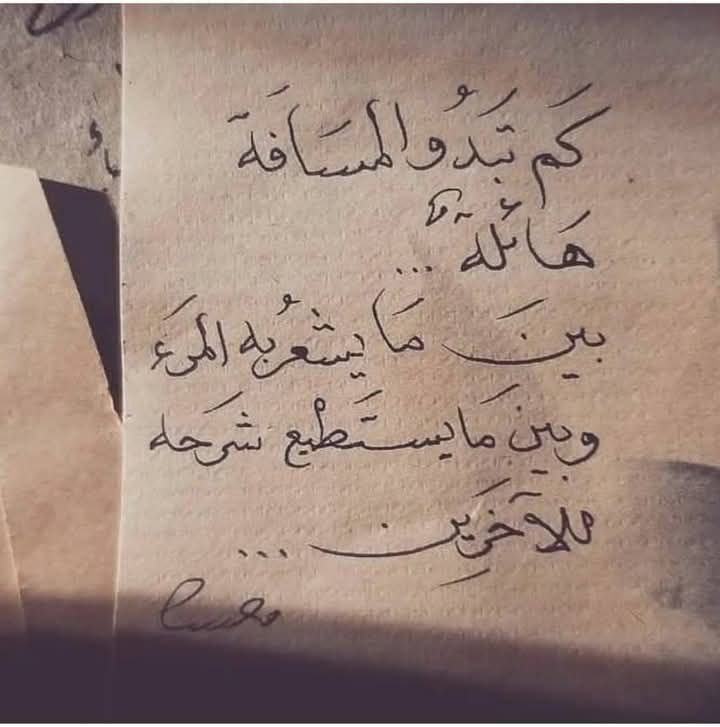 كَم تَبَدُو المسَافَة
هَائلةٌ ...
بينَ مَا يشعُر به المرَء
وبين مَا يستَطْيع شرَحه
للآخرِين ...